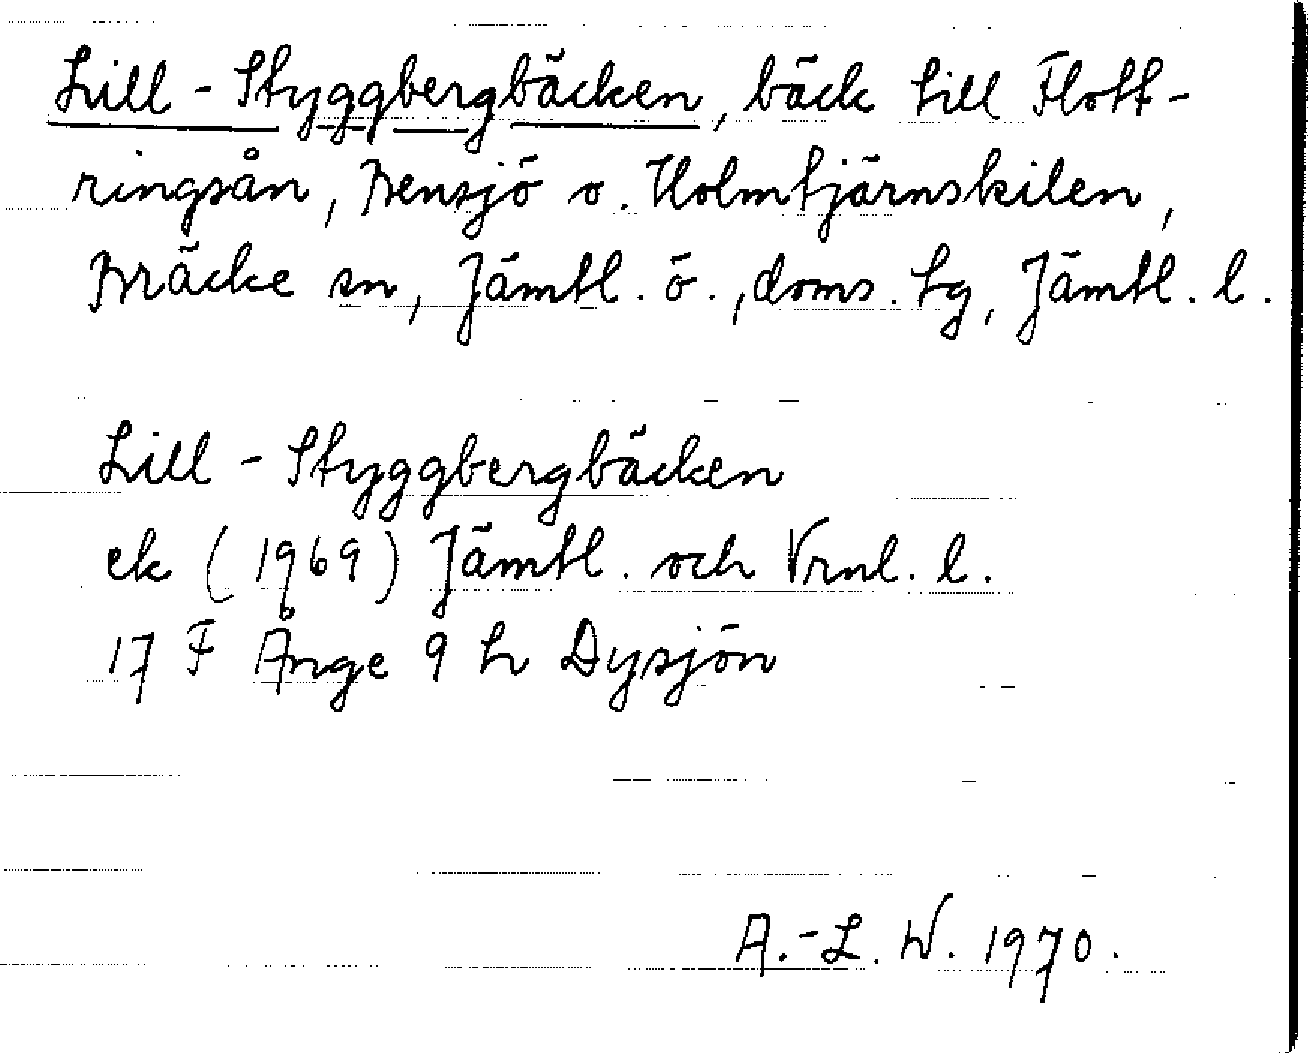 Lill-Styggbergbäcken, bäck till Flott-
ringsån, Bensjö o. Holmtjärnskilen,
Bräcke sn, Jämtl. ö., doms. tg, Jämtl. l.
Lill-Styggbergbäcken
ek (1969) Jämtl. och Vrnl. l.
17 F Ånge 9 h Dysjön
A.-L. W. 1970.